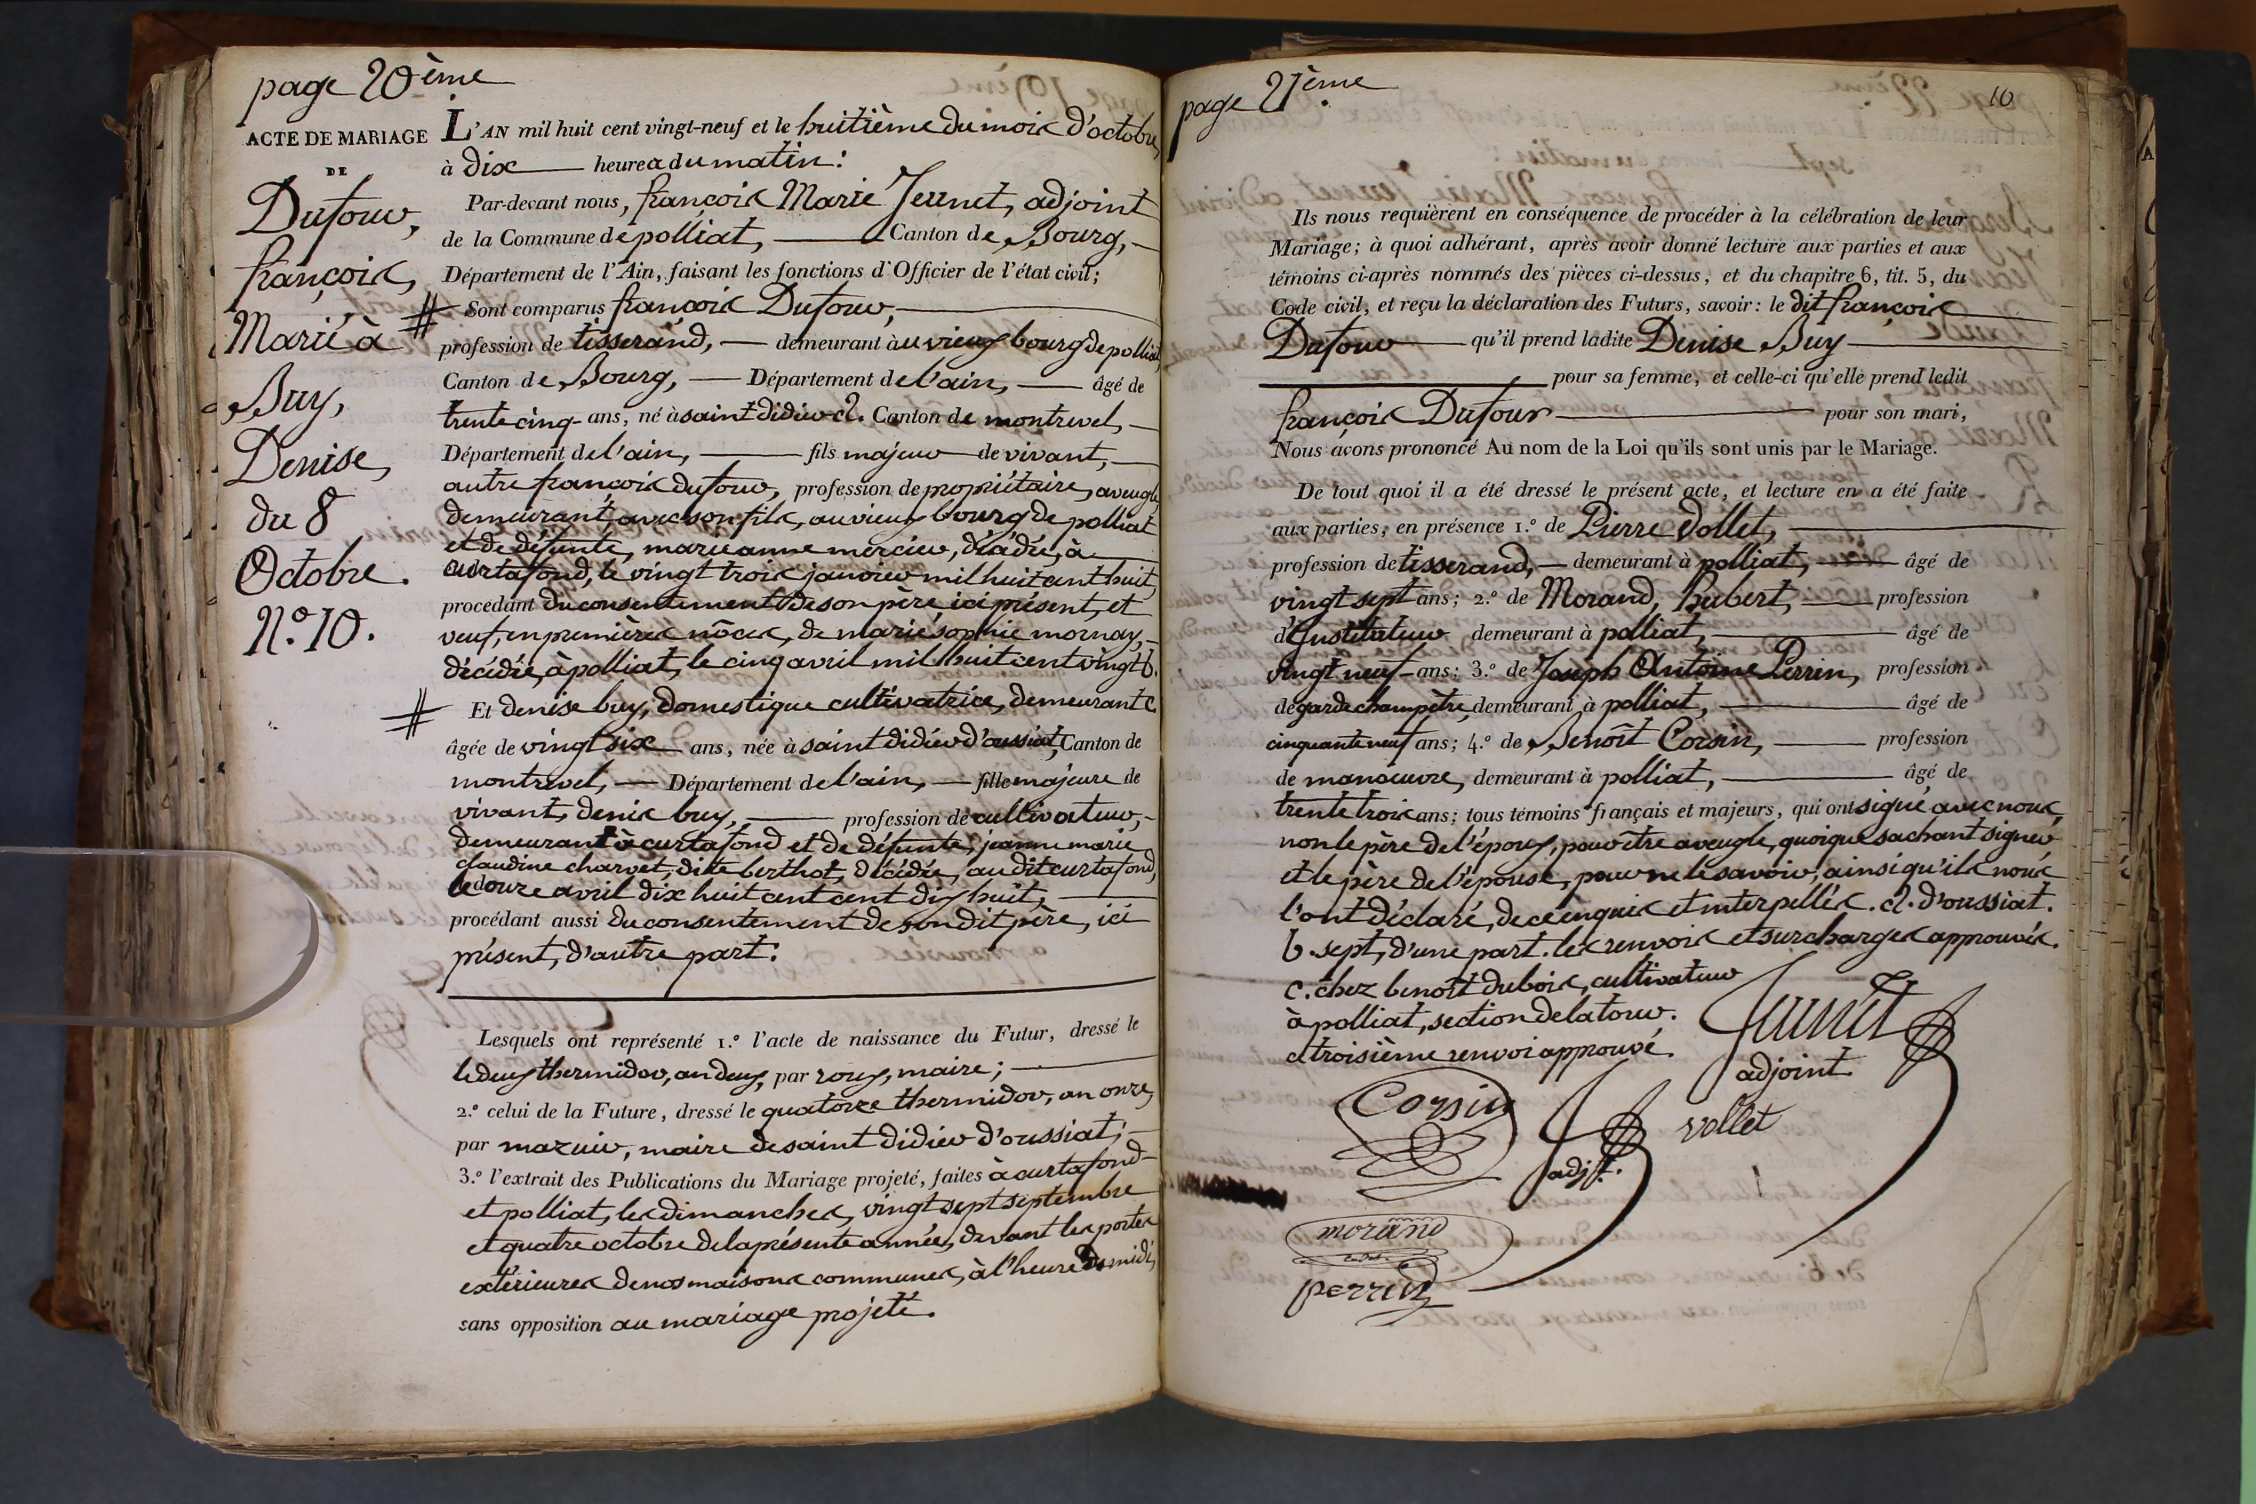 page 20ème
ACTE DE MARIAGE
DE
Dufour,
françois,
Marié à
Buy,
Denise,
du 8
Octobre.
N.º 10.
L'AN mil huit cent vingt-neuf et le huitième du mois d'octobre,
à dix heures du matin:
Par-devant nous, françois Marie Jeunet, adjoint
de la Commune de polliat, Canton de Bourg,
Département de l'Ain, faisant les fonctions d'Officier de l'état civil;
# Sont comparus françois Dufour,
profession de tisserand, demeurant au vieux bourg de polliat,
Canton de Bourg, Département de l'ain, âgé de
trente cinq ans, né à saint didier a. Canton de montrevel,
Département de l'ain, fils majeur de vivant,
autre françois dufour, profession de propriétaire, aveugle
demeurant, avec son fils, au vieux bourg de polliat
et de défunte, marie anne mercier, décédée, à
curtafond, le vingt trois janvier mil huit cent huit,
procédant du consentement de son père, ici présent, et
veuf, en premières nôces, de marie sophie mornay,
décédée, à polliat, le cinq avril mil huit cent vingt b.
# Et denise buy, domestique cultivatrice, demeurant c.
âgée de vingt six ans, née à saint didier d'oussiat, Canton de
montrevel, Département de l'ain, fille majeure de
vivant, denis buy, profession de cultivateur,
demeurant à curtafond et de défunte, jeanne marie
claudine charvet, dite berthot, décédée, au dit curtafond,
le douze avril dix huit cent cent dix huit,
procédant aussi du consentement de son dit père, ici
présent, d'autre part:
Lesquels ont représenté 1.º l'acte de naissance du Futur, dressé le
le deux thermidor, an deux, par roux, maire;
2.º celui de la Future, dressé le quatorze thermidor, an onze,
par mazuir, maire de saint didier d'oussiat;
3.º l'extrait des Publications du Mariage projeté, faites à curtafond
et polliat, les dimanches, vingt sept septembre
et quatre octobre de la présente année, devant les portes
extérieures de nos maisons communes, à l'heure de midi,
sans opposition au mariage projeté.
page 21ème
10
Ils nous requièrent en conséquence de procéder à la célébration de leur
Mariage; à quoi adhérant, après avoir donné lecture aux parties et aux
témoins ci-après nommés des pièces ci-dessus, et du chapitre 6, tit. 5, du
Code civil, et reçu la déclaration des Futurs, savoir: le dit françois
Dufour qu'il prend ladite Denise Buy
pour sa femme, et celle-ci qu'elle prend ledit
françois Dufour pour son mari,
Nous avons prononcé Au nom de la Loi qu'ils sont unis par le Mariage.
De tout quoi il a été dressé le présent acte, et lecture en a été faite
aux parties, en présence 1.º de Pierre Vollet,
profession de tisserand, demeurant à polliat, âgé de
vingt sept ans; 2.º de Morand, hubert, profession
d'Instituteur demeurant à polliat, âgé de
vingt neuf ans; 3.º de Joseph Antoine Perrin, profession
de garde champêtre, demeurant à polliat, âgé de
cinquante neuf ans; 4.º de Benoît Corsin, profession
de manoeuvre, demeurant à polliat, âgé de
trente trois ans; tous témoins français et majeurs, qui ont signé avec nous,
non le père de l'époux, pour être aveugle, quoique sachant signer,
et le père de l'épouse, pour ne le savoir, ainsi qu'ils nous
l'ont déclaré, de ce enquis et interpellés. a. d'oussiat.
b. sept, d'une part. les renvois et surcharges approuvés.
c. chez benoît dubois, cultivateur
à polliat, section de la tour.
troisième renvoi approuvé.
Jeunet
adjoint
Corsin
adjt.
vollet
morand
perrin